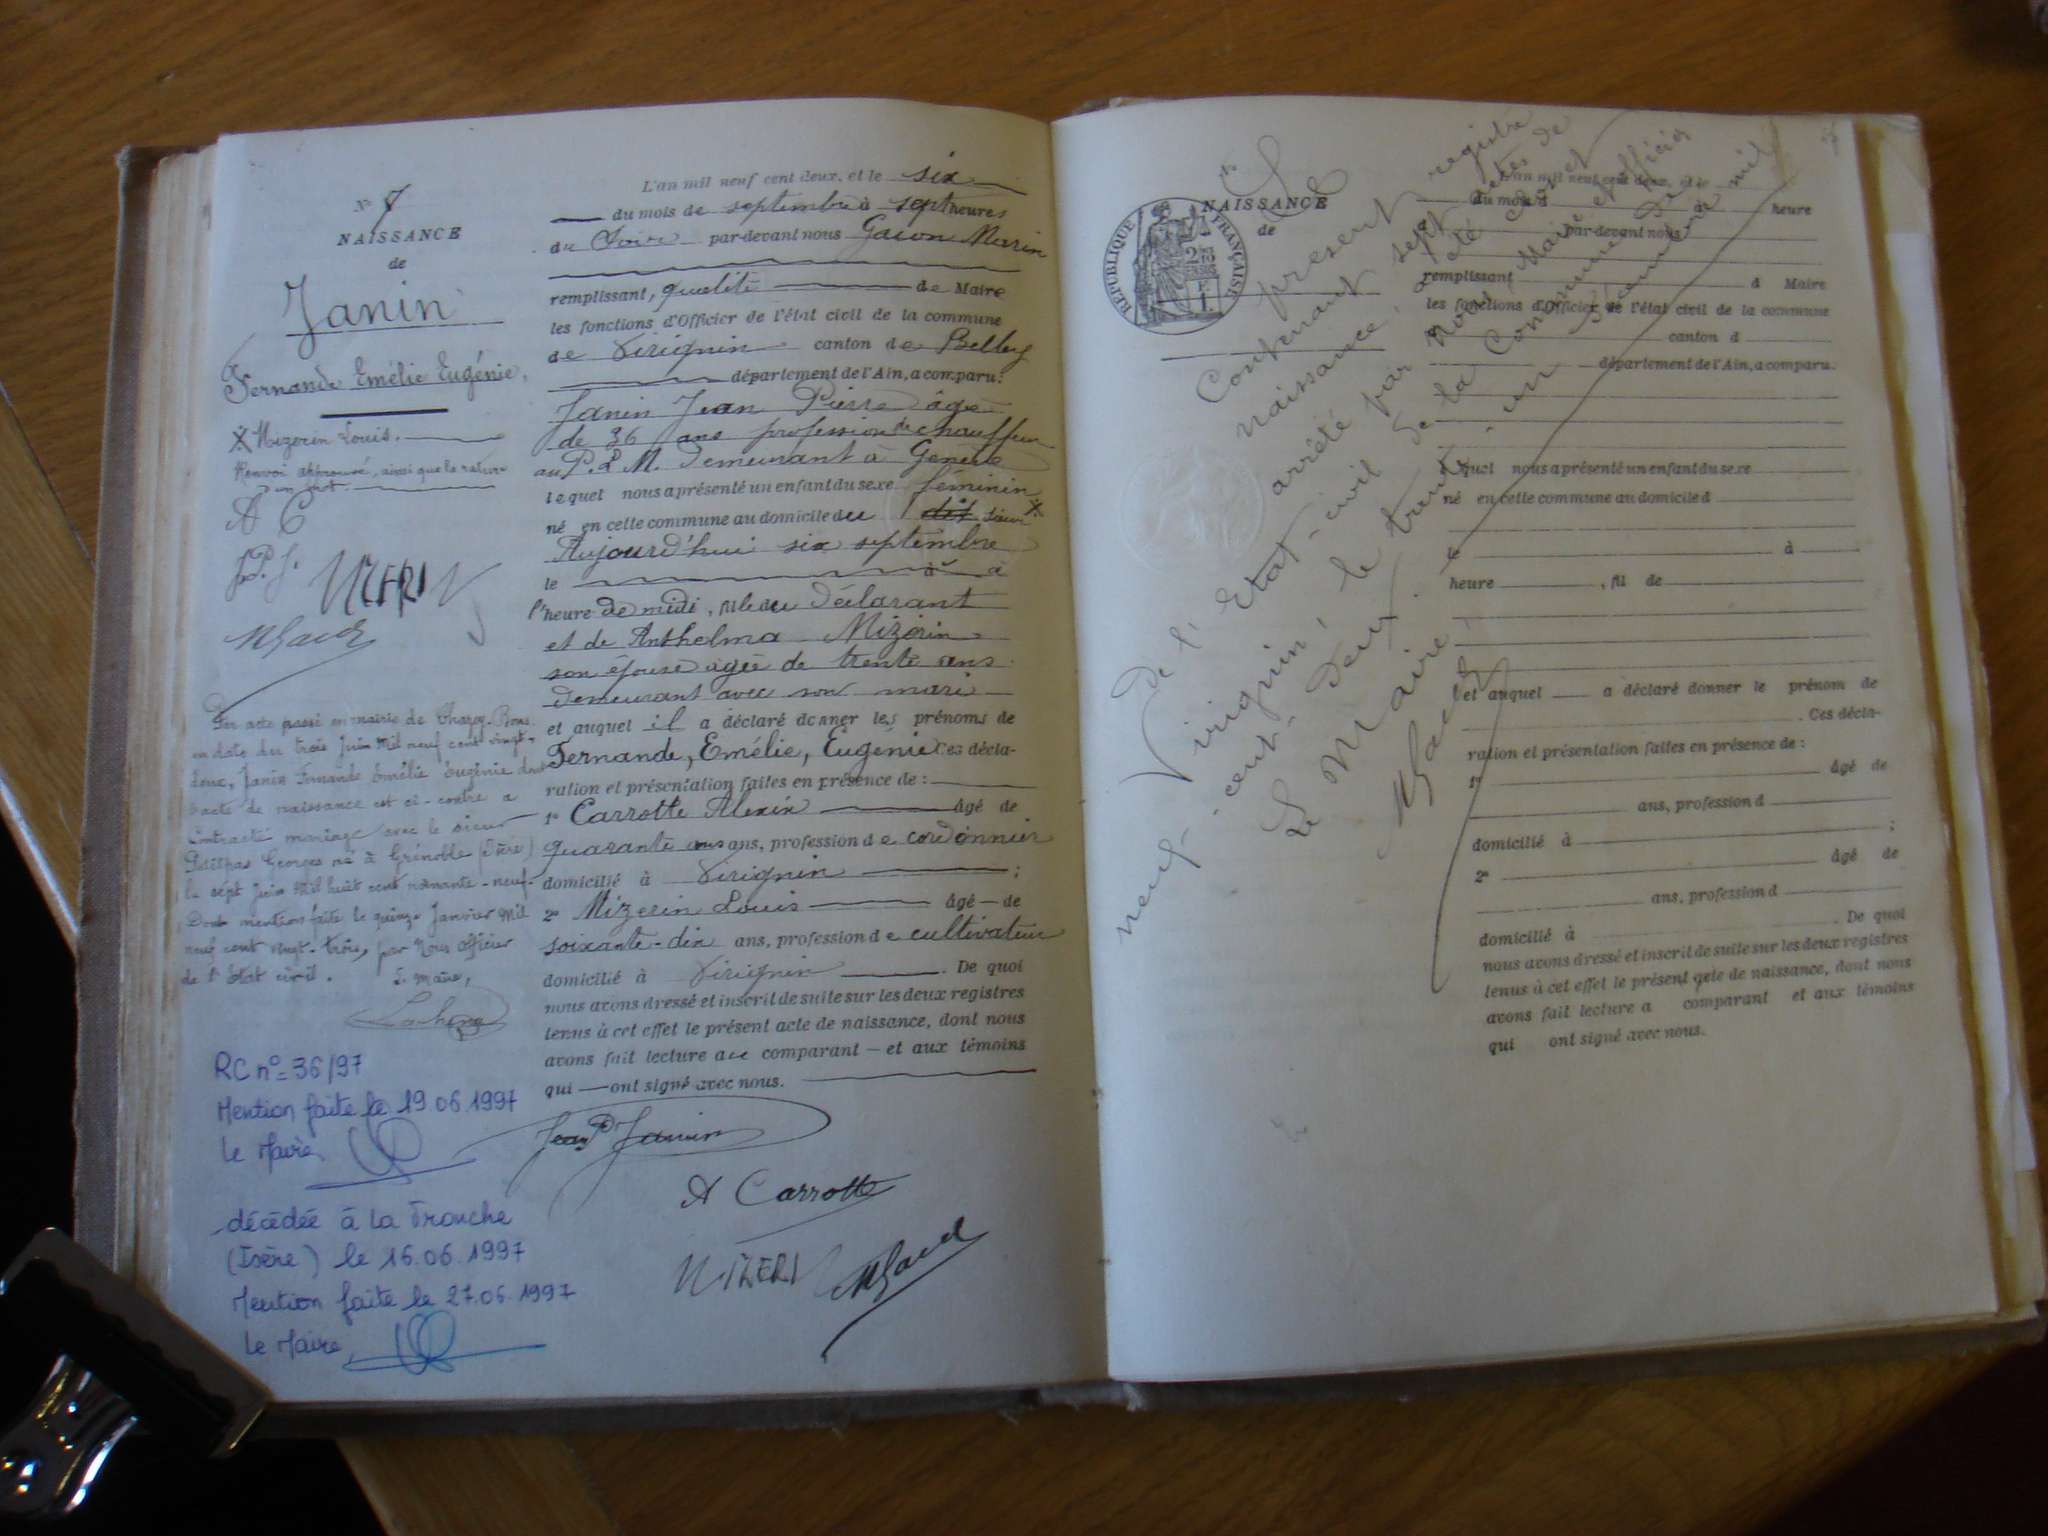 N° 7
NAISSANCE
de
Janin
Fernande Emélie Eugénie.
Mizerin Louis.
Renvoi approuvé, ainsi que la rature
d'un mot.
A C
J. P. J.
MIZERIN
Par acte passé en mairie de
en date du trois Juin Mil neuf cent vingt-
deux, Janin Fernande Emélie Eugénie dont
l'acte de naissance est ci-contre a
Contracté mariage avec le sieur
Petitpas Georges né à Grenoble (Isère)
le sept Juin Mil huit cent nonante-neuf.
Dont mention faite le quinze Janvier Mil
neuf cent vingt-trois, par Nous Officier
de l'état civil. Le maire,
RC n° = 36/97
Mention faite le 19 06 1997
Le Maire
décédée à La Tronche
(Isère) le 16.06.1997
Mention faite le 27.06.1997
Le Maire,
L'an mil neuf cent deux, et le six
du mois de septembre à sept heures
du soir par-devant nous Gacon Marin
remplissant, qualité de Maire
les fonctions d'Officier de l'état civil de la commune
de Virignin canton de Belley
département de l'Ain, a comparu:
Janin Jean Pierre âgé
de 36 ans profession de chauffeur
au P. L. M. demeurant à Genève
lequel nous a présenté un enfant du sexe féminin
né en cette commune au domicile du dit sieur
Aujourd'hui six septembre
le à à
l'heure de midi, fille du déclarant
et de Anthelma Mizerin
son épouse agée de trente ans
demeurant avec son mari
et auquel il a déclaré donner les prénoms de
Fernande, Emélie, Eugénie Ces décla-
ration et présentation faites en présence de :
1° Carrotte Alexis âgé de
quarante ans ans, profession de cordonnier
domicilié à Virignin ;
2° Mizerin Louis âgé de
soixante-dix ans, profession de cultivateur
domicilié à Virignin . De quoi
nous avons dressé et inscrit de suite sur les deux registres
tenus à cet effet le présent acte de naissance, dont nous
avons fait lecture au comparant et aux témoins
qui ont signé avec nous.
Jean P. Janin
A Carrotte
MIZERI
RÉPUBLIQUE FRANÇAISE
NAISSANCE
de
L'an mil neuf cent deux, et le
du mois d heure
par-devant nous
remplissant d Maire
les fonctions d'Officier de l'état civil de la commune
canton d
département de l'Ain, a comparu.
quel nous a présenté un enfant du sexe
né en cette commune au domicile d
le à
heure , fil de
et auquel a déclaré donner le prénom de
. Ces décla-
ration et présentation faites en présence de :
1° âgé de
ans, profession d
domicilié à ;
2° âgé de
ans, profession d
domicilié à . De quoi
nous avons dressé et inscrit de suite sur les deux registres
tenus à cet effet le présent acte de naissance, dont nous
avons fait lecture a comparant et aux témoins
qui ont signé avec nous.
présent registre
Contenant sept actes de
naissance, a été clos et
arrêté par nous, Maire et officier
de l'Etat-civil de la Commune de
Virignin, le trente-un décembre mil
neuf-cent-deux.
Le Maire,